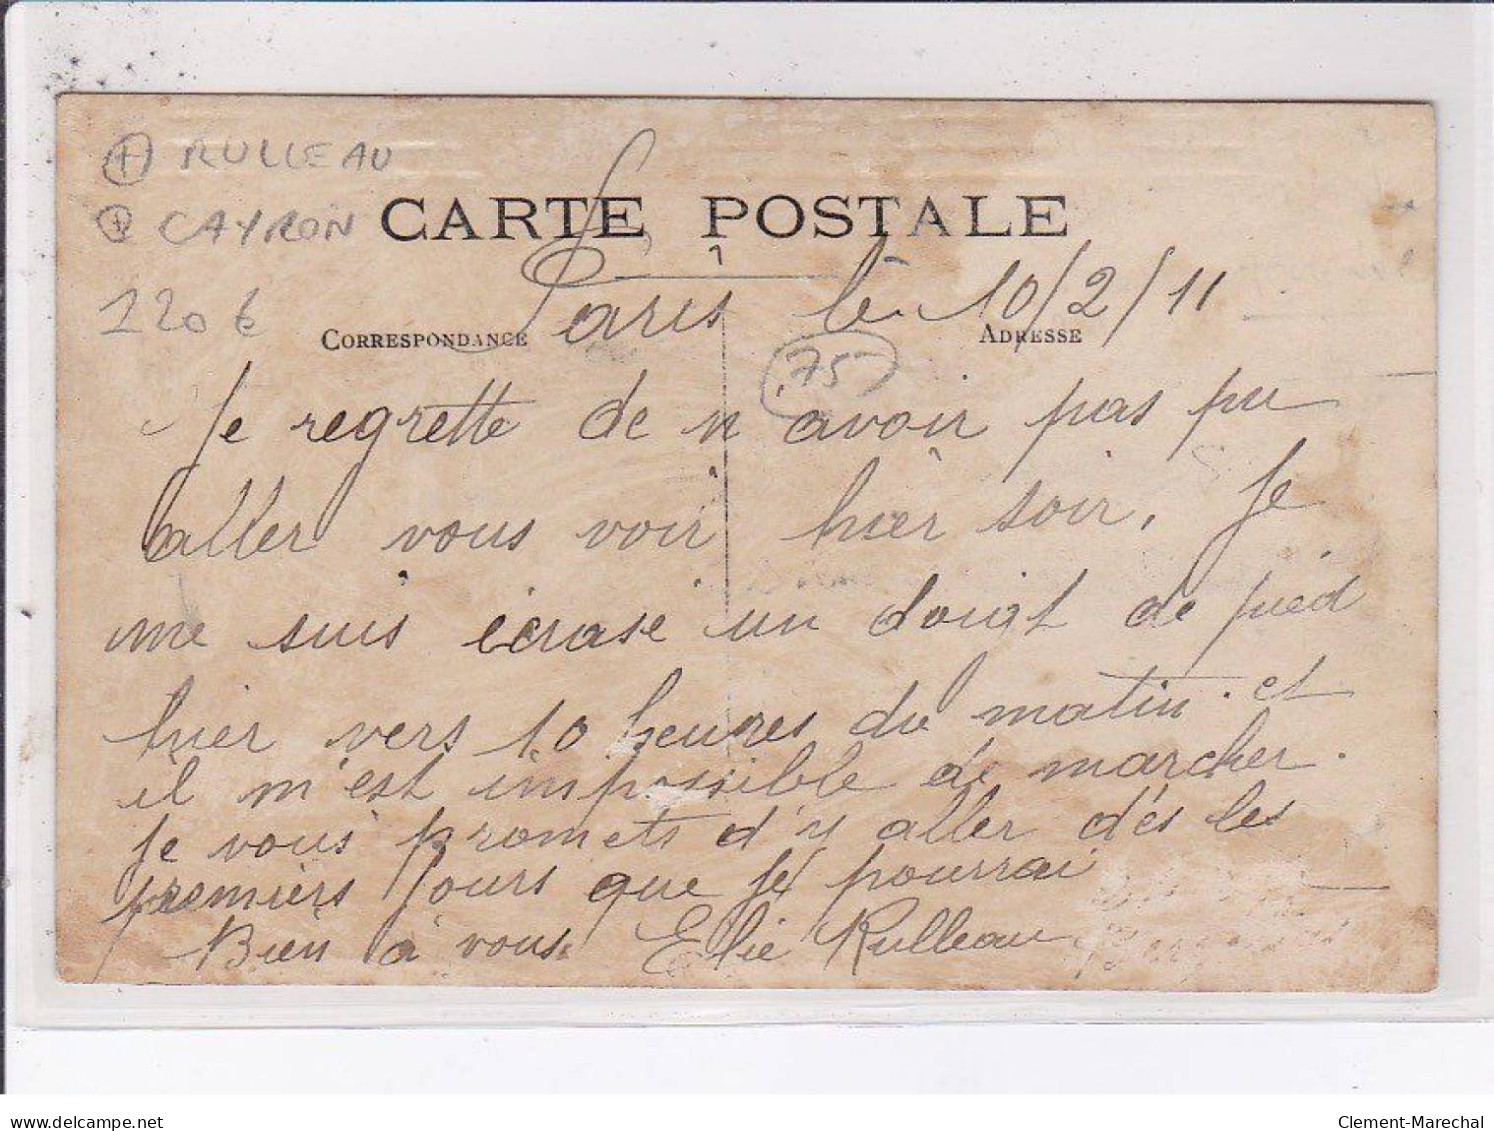 + RULLEAU
+ CAYRON
CARTE POSTALE
120 €
Paris le 10/2/11
CORRESPONDANCE
ADRESSE
75
Je regrette de n'avoir pas pu
aller vous voir hier soir. Je
me suis écrasé un doigt de pied
hier vers 10 heures du matin. et
il m'est impossible de marcher.
Je vous promets d'y aller dés les
premiers jours que je pourrai
Bien à vous. Elie Rulleau
delcampe.net
Clement-Marechal